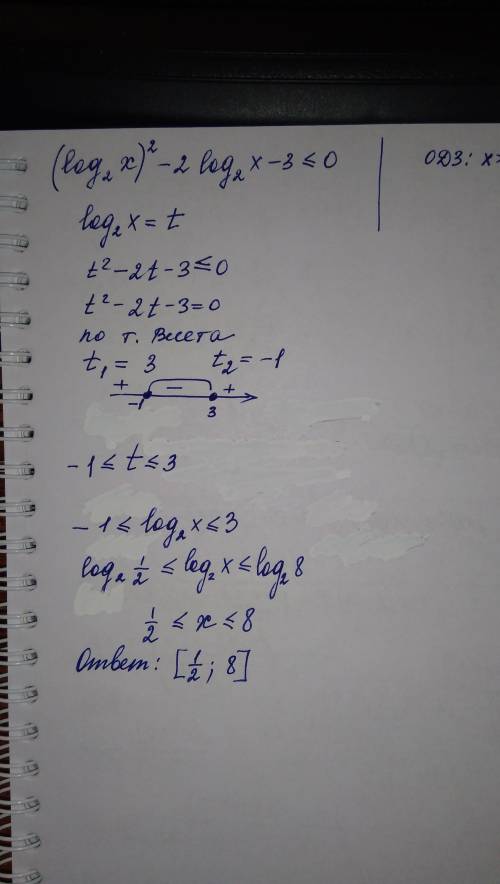 (log₂x)² - 2 log₂x - 3 ≤ 0
ОДЗ: x>
log₂x = t
t² - 2t - 3 ≤ 0
t² - 2t - 3 = 0
по т. Виета
t₁ = 3 t₂ = -1
+ − +
-1 3
-1 ≤ t ≤ 3
-1 ≤ log₂x ≤ 3
log₂ 1/2 ≤ log₂x ≤ log₂8
1/2 ≤ x ≤ 8
Ответ: [1/2; 8]